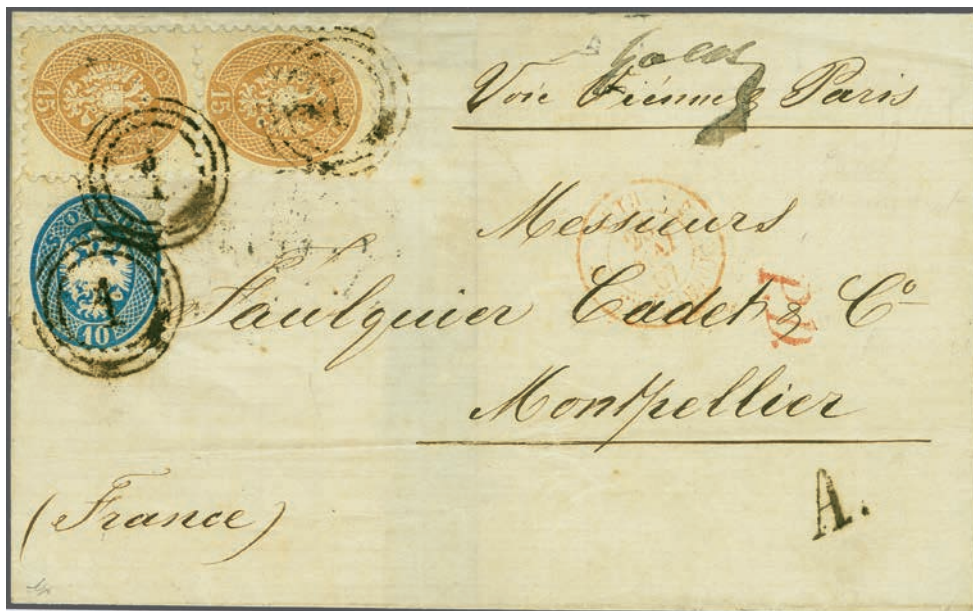 15 15
10
Voie Vienne & Paris
Messieurs
Faulquier Cadet & Cº
Montpellier
(France)
P.D.
A.